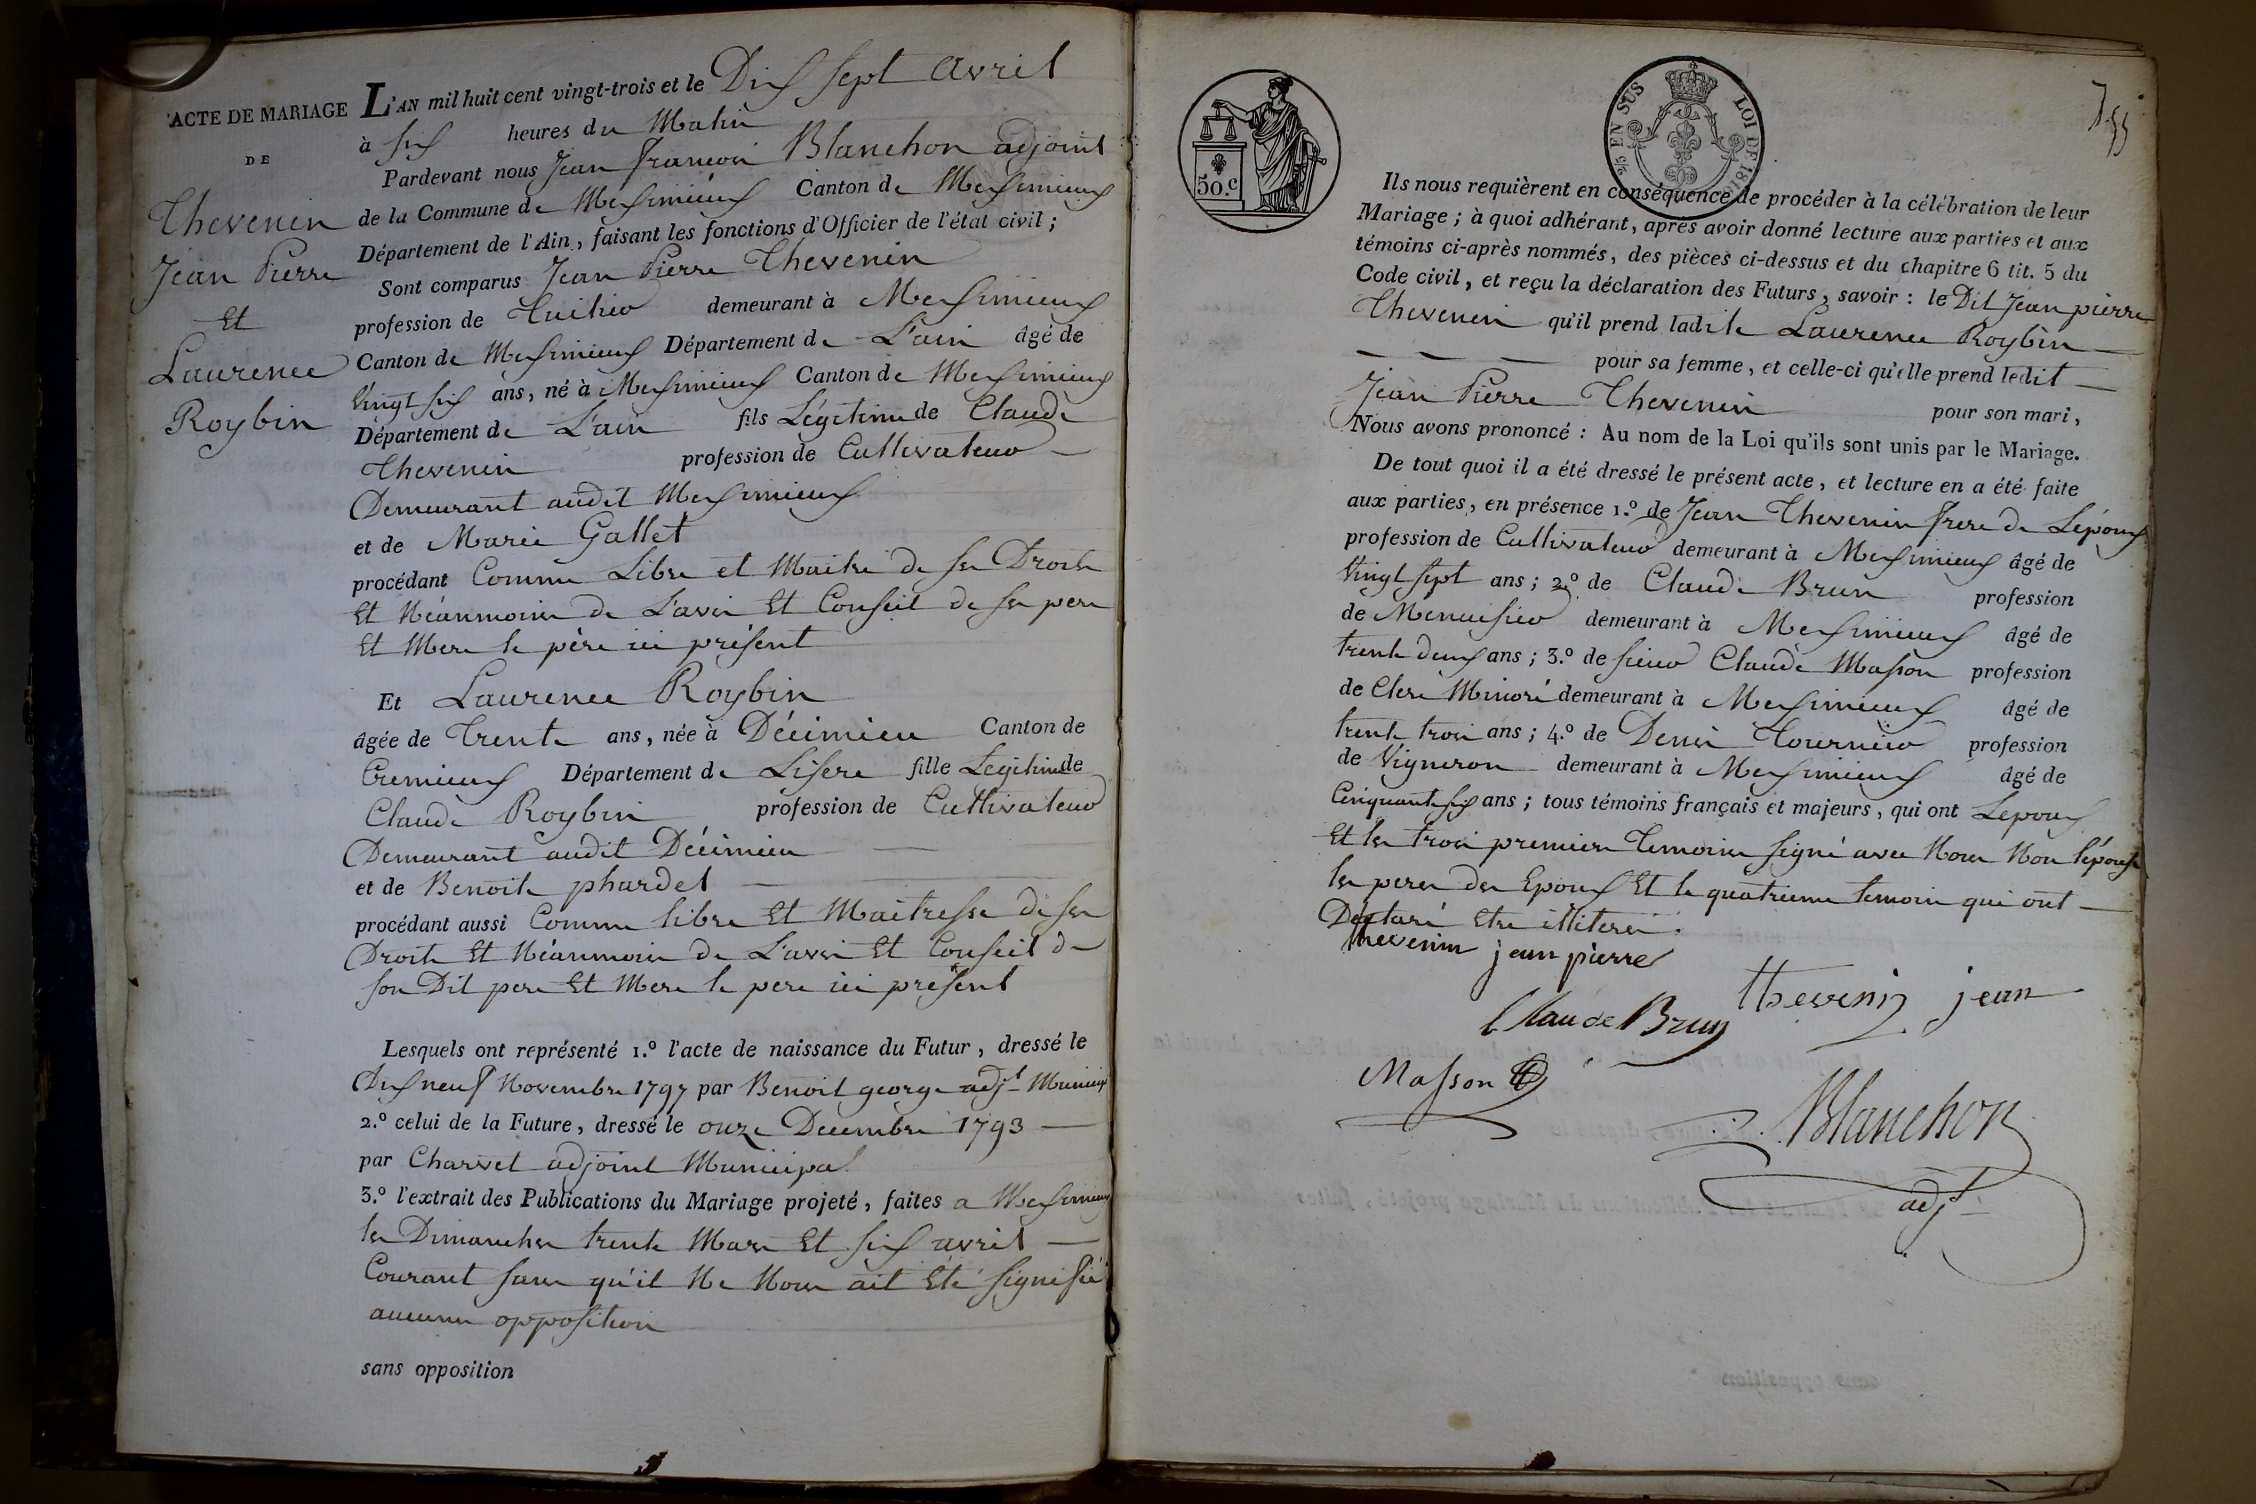 ACTE DE MARIAGE
DE
Thevenin
Jean Pierre
Et
Laurence
Roybin
L'AN mil huit cent vingt-trois et le Dix sept avril
à six heures du Matin
Pardevant nous Jean françois Blanchon adjoint
de la Commune de Meximieux Canton de Meximieux
Département de l'Ain, faisant les fonctions d'Officier de l'état civil;
Sont comparus Jean Pierre Thevenin
profession de Tuilier demeurant à Meximieux
Canton de Meximieux Département de L'ain âgé de
Vingt six ans, né à Meximieux Canton de Meximieux
Département de L'ain fils Légitime de Claude
Thevenin profession de Cultivateur
Demeurant audit Meximieux
et de Marie Gallet
procédant Comme Libre et Maitre de ses Droits
Et Néanmoins de L'avis Et Conseil de ses pere
Et Mere le père ici présent
Et Laurence Roybin
âgée de Trente ans, née à Décimieu Canton de
Cremieux Département de Lisere fille Legitime de
Claude Roybin profession de Cultivateur
Demeurant audit Décimieu
et de Benoite phardel
procédant aussi Comme libre Et Maitresse de ses
Droits Et Néanmoins de L'avis Et Conseil de
son Dit pere Et Mere le pere ici présent
Lesquels ont représenté 1.º l'acte de naissance du Futur, dressé le
Dix neuf Novembre 1797 par Benoit george adjt Municip
2.º celui de la Future, dressé le onze Decembre 1793
par Charvet adjoint Municipal
3.º l'extrait des Publications du Mariage projeté, faites a Meximieux
les Dimanches trente Mars Et six avril
Courant sans qu'il Ne Nous ait Eté signifié
aucune opposition
sans opposition
50.c
c/s EN SUS LOI DE 1816
Ils nous requièrent en conséquence de procéder à la célébration de leur
Mariage; à quoi adhérant, après avoir donné lecture aux parties et aux
témoins ci-après nommés, des pièces ci-dessus et du chapitre 6 tit. 5 du
Code civil, et reçu la déclaration des Futurs, savoir: le Dit Jean pierre
Thevenin qu'il prend ladite Laurence Roybin
pour sa femme, et celle-ci qu'elle prend ledit
Jean Pierre Thevenin pour son mari,
Nous avons prononcé: Au nom de la Loi qu'ils sont unis par le Mariage.
De tout quoi il a été dressé le présent acte, et lecture en a été faite
aux parties, en présence 1.º de Jean Thevenin frere de Lépoux
profession de Cultivateur demeurant à Meximieux âgé de
Vingt sept ans; 2.º de Claude Brun profession
de Menuisier demeurant à Meximieux âgé de
trente deux ans; 3.º de sieur Claude Masson profession
de Clerc Minoré demeurant à Meximieux âgé de
trente trois ans; 4.º de Denis Tournier profession
de Vigneron demeurant à Meximieux âgé de
Cinquante six ans; tous témoins français et majeurs, qui ont Lepoux
Et les trois premiers Temoins signé avec Nous Non l'épouse
les peres des Epoux Et le quatrieme temoin qui ont
Déclaré Etre illiterés.
thevenin jean pierre
thevenin jean
Claude Brun
Masson
Blanchon
adjt